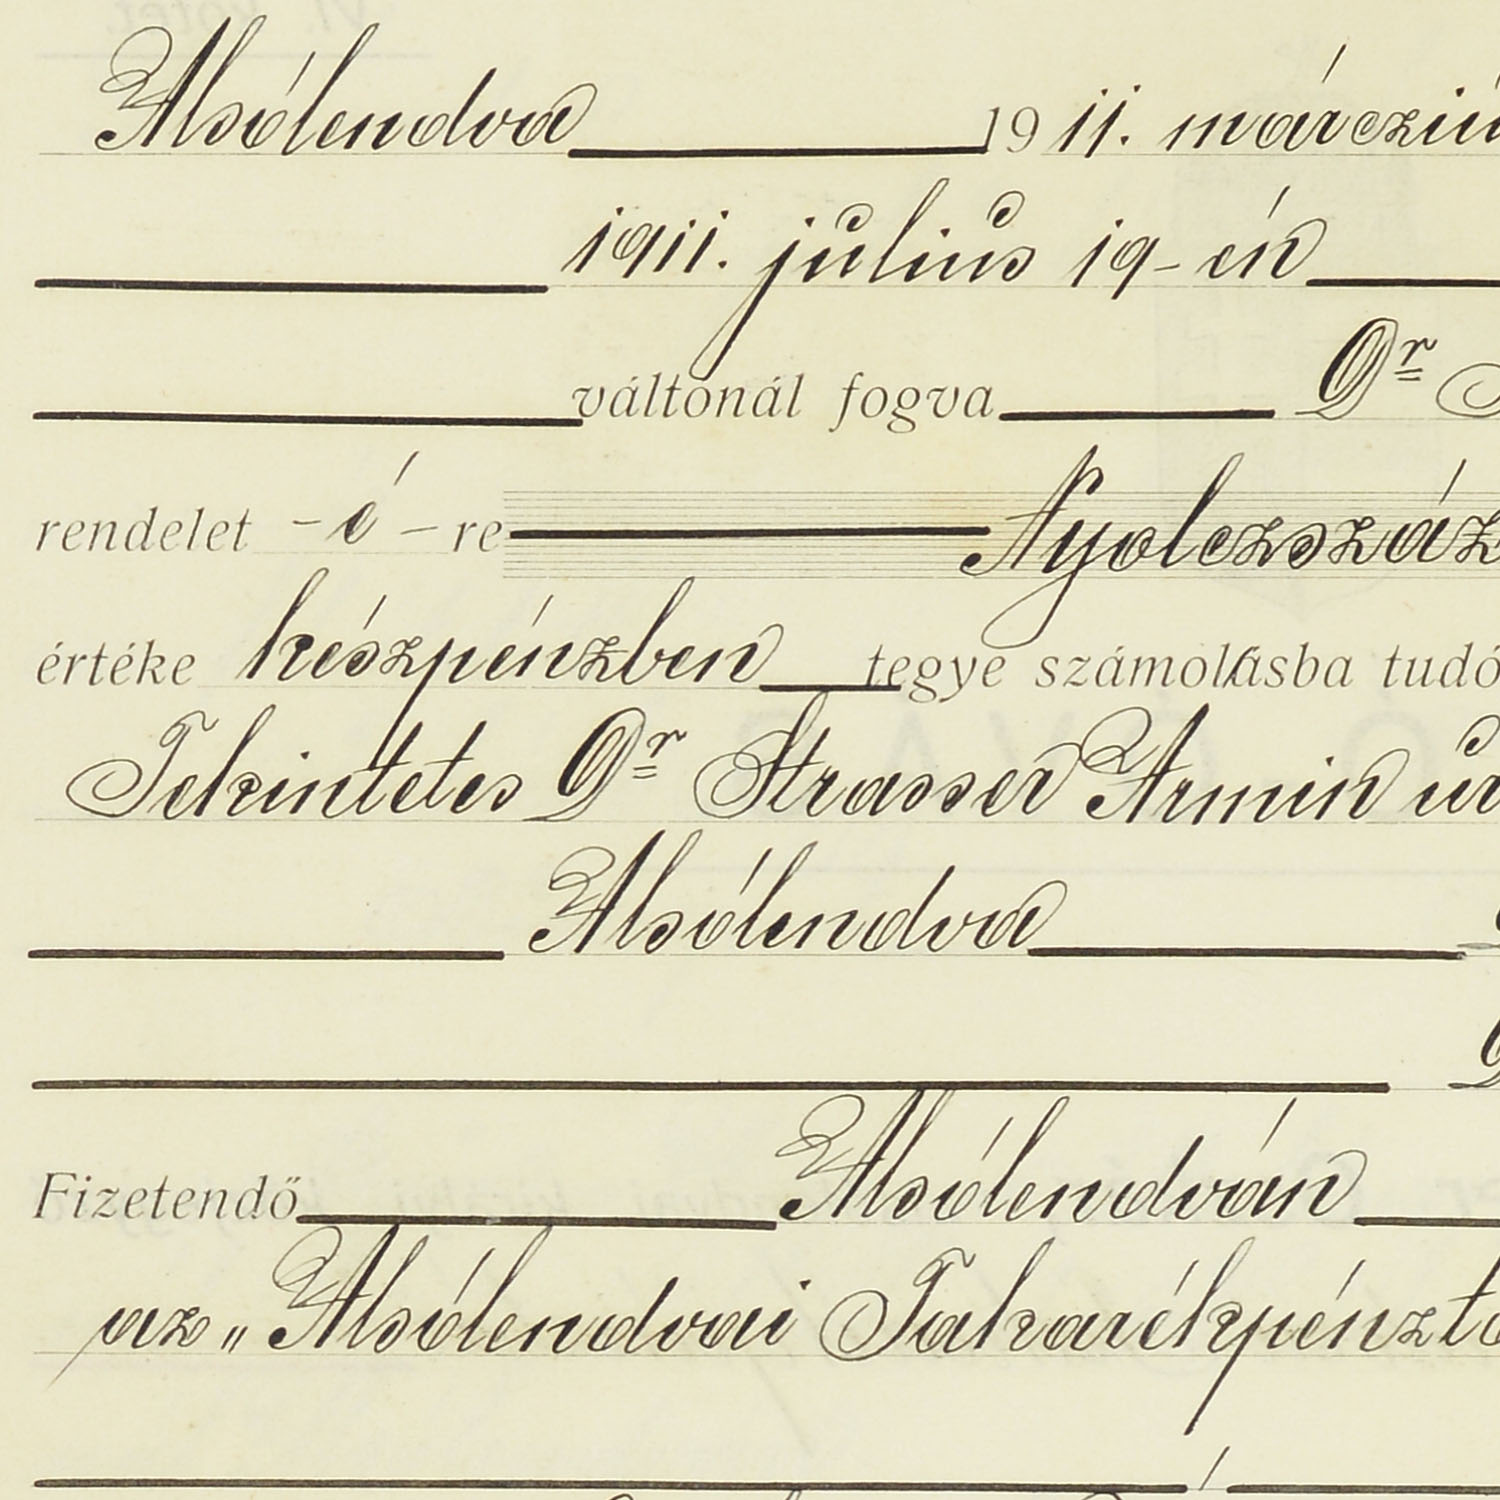 Alsólendva 1911. márcziu
1911. július 19-én
váltónál fogva Dr
rendelet -é- re Nyolczszáz
értéke készpénzben tegye számolásba tudó
Tekintetes Dr Strasser Ármin úr
Alsólendva
Fizetendő Alsólendván
az „Alsólendvai Takarékpénztá